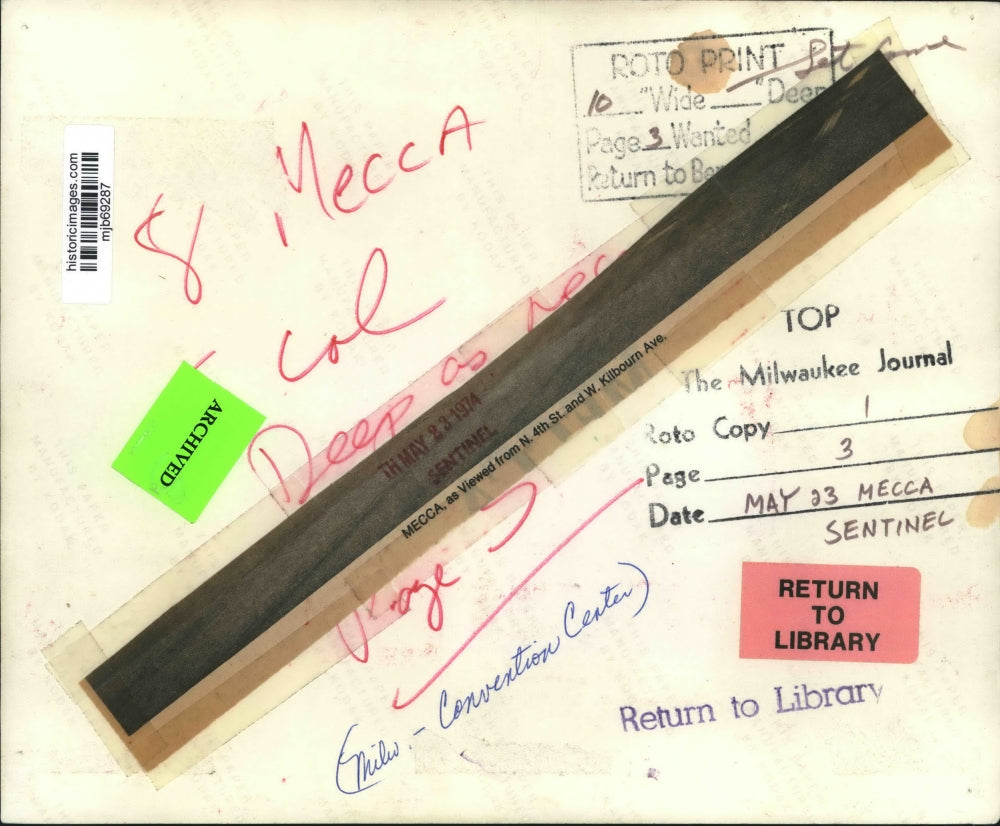 ROTO PRINT
10 "Wide "Deep
Page 3 Wanted
Return to
historicimages.com
mjb69287
8 MECCA
col
Deep as
Page 3
ARCHIVED
TH MAY 23 1974
SENTINEL
MECCA, as Viewed from N. 4th St. and W. Kilbourn Ave.
TOP
The Milwaukee Journal
Roto Copy 1
Page 3
Date MAY 23 MECCA
SENTINEL
RETURN
TO
LIBRARY
(Milw. - Convention Center)
Return to Library